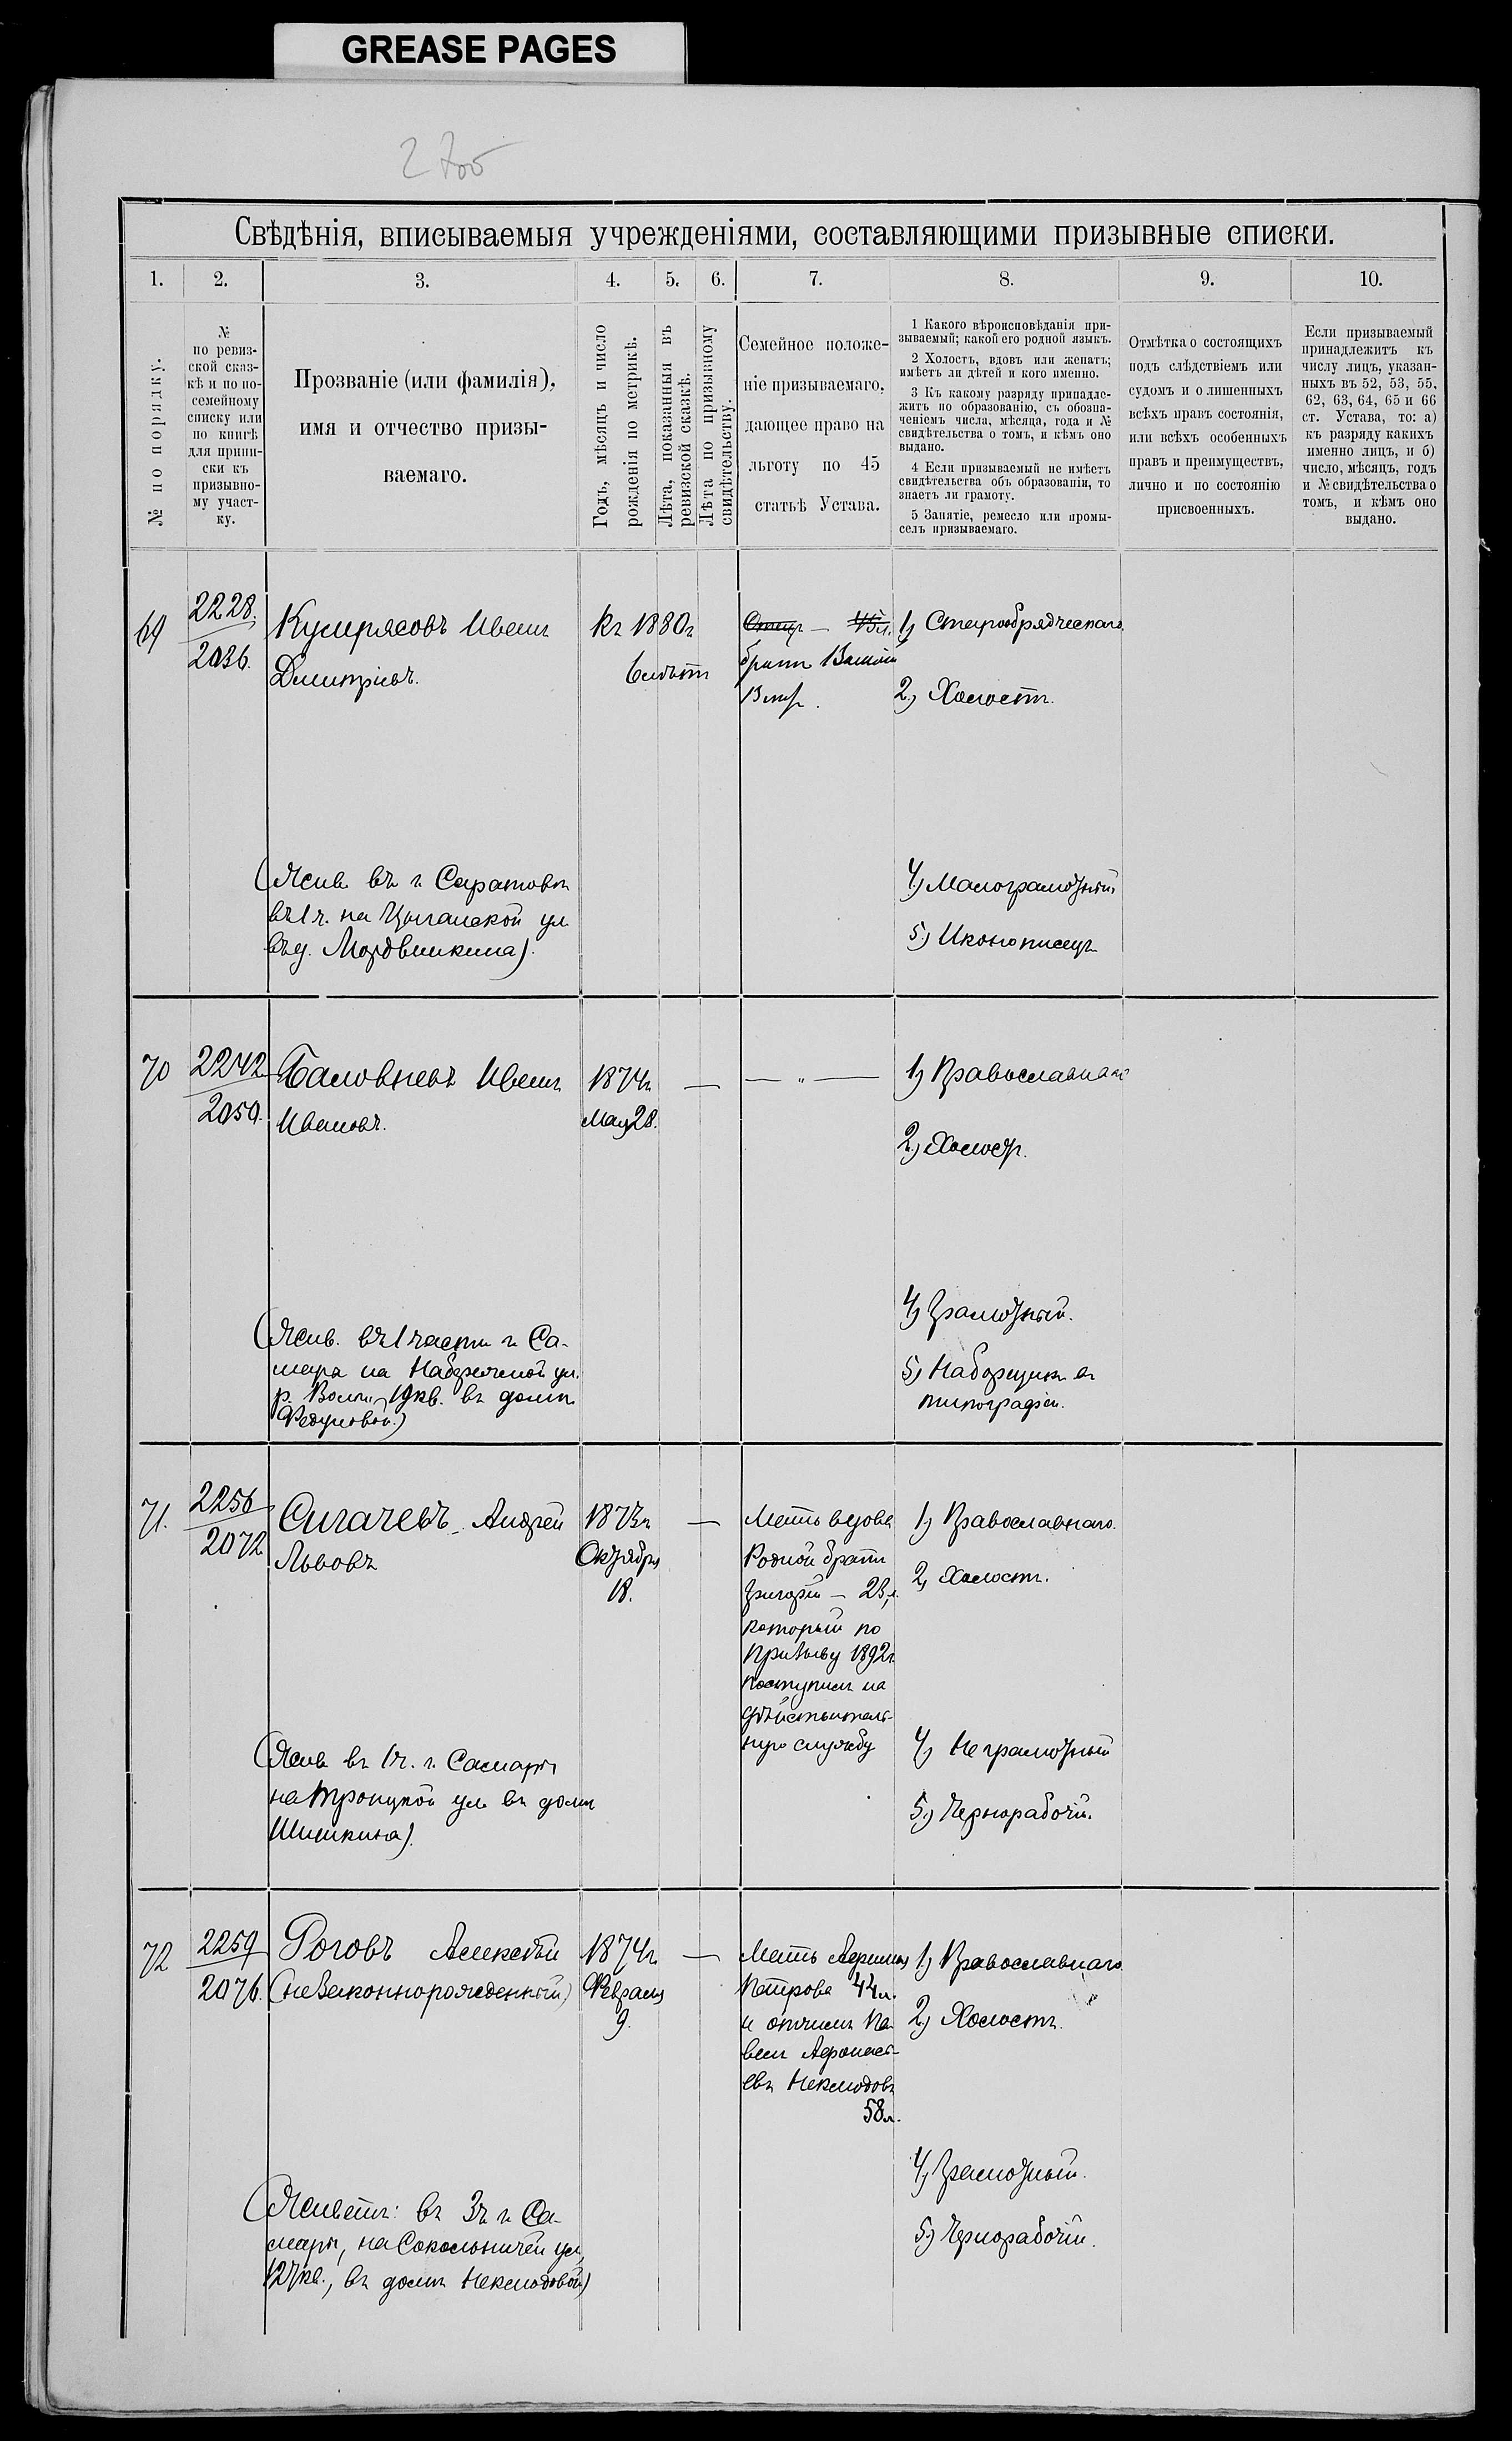 GREASE PAGES
Свѣдѣнія, вписываемыя учрежденіями, составляющими призывные списки.
1. 2. 3. 4. 5. 6. 7. 8. 9. 10.
№ по порядку.
№
по ревиз-
ской сказ-
кѣ и по по-
семейному
списку или
по книгѣ
для припи-
ски къ
призывно-
му участ-
ку.
Прозваніе (или фамилія),
имя и отчество призы-
ваемаго.
Годъ, мѣсяцъ и число
рожденія по метрикѣ.
Лѣта, показанныя въ
ревизской сказкѣ.
Лѣта по призывному
свидѣтельству.
Семейное положе-
ніе призываемаго,
дающее право на
льготу по 45
статьѣ Устава.
1 Какого вѣроисповѣданія при-
зываемый; какой его родной языкъ.
2 Холостъ, вдовъ или женатъ;
имѣетъ ли дѣтей и кого именно.
3 Къ какому разряду принадле-
житъ по образованію, съ обозна-
ченіемъ числа, мѣсяца, года и №
свидѣтельства о томъ, и кѣмъ оно
выдано.
4 Если призываемый не имѣетъ
свидѣтельства объ образованіи, то
знаетъ ли грамоту.
5 Занятіе, ремесло или промы-
селъ призываемаго.
Отмѣтка о состоящихъ
подъ слѣдствіемъ или
судомъ и о лишенныхъ
всѣхъ правъ состоянія,
или всѣхъ особенныхъ
правъ и преимуществъ,
лично и по состоянію
присвоенныхъ.
Если призываемый
принадлежитъ къ
числу лицъ, указан-
ныхъ въ 52, 53, 55,
62, 63, 64, 65 и 66
ст. Устава, то: а)
къ разряду какихъ
именно лицъ, и б)
число, мѣсяцъ, годъ
и № свидѣтельства о
томъ, и кѣмъ оно
выдано.
69
2228
2036.
Иванъ
Дмитріевъ.
Къ 1880г
6 лѣтъ
Отецъ — 45л.
братъ
13 лѣтъ.
1) Старообрядческаго
2) Холостъ.
(Жив. въ г. Саратовѣ
въ 1 ч. на Цыганской ул
въ д. Мордвинкина).
4) Малограмотный
5) Иконописецъ
70
2242
2059.
Баловневъ Иванъ
Ивановъ.
1874г
Мая 28.
— — „ —
1) Православнаго
2) Холостъ.
(Жив. въ 1 части г. Са-
мара на Набережной ул.
р. Волги, 19 кв. въ домѣ
Федуловой.)
4) Грамотный.
5) Наборщикъ въ
типографіи.
71.
2256
2072
Сигачевъ Андрей
Львовъ
1873г
Октября
18.
—
Мать вдова
Родной братъ
Григорій — 23 л.
который по
призыву 1892г.
поступилъ на
дѣйствитель-
ную службу
1) Православнаго.
2) Холостъ.
(Жив. въ 1 ч. г. Самары
на Троицкой ул. въ домѣ
Шишкина).
4) Неграмотный
5) Чернорабочій.
72
2259
2076.
Роговъ Алексѣй
(незаконнорожденный)
1874г.
Февраля
9.
—
Мать
Петрова 44 л.
и отчимъ Па-
велъ Афонась-
евъ Неклюдовъ
58 л.
1) Православнаго.
2) Холостъ.
(Живетъ: въ 3ч г. Са-
мары, на Сокольничей ул,
127 кв., въ домѣ Неклюдовой)
4) Грамотный.
5) Чернорабочій.